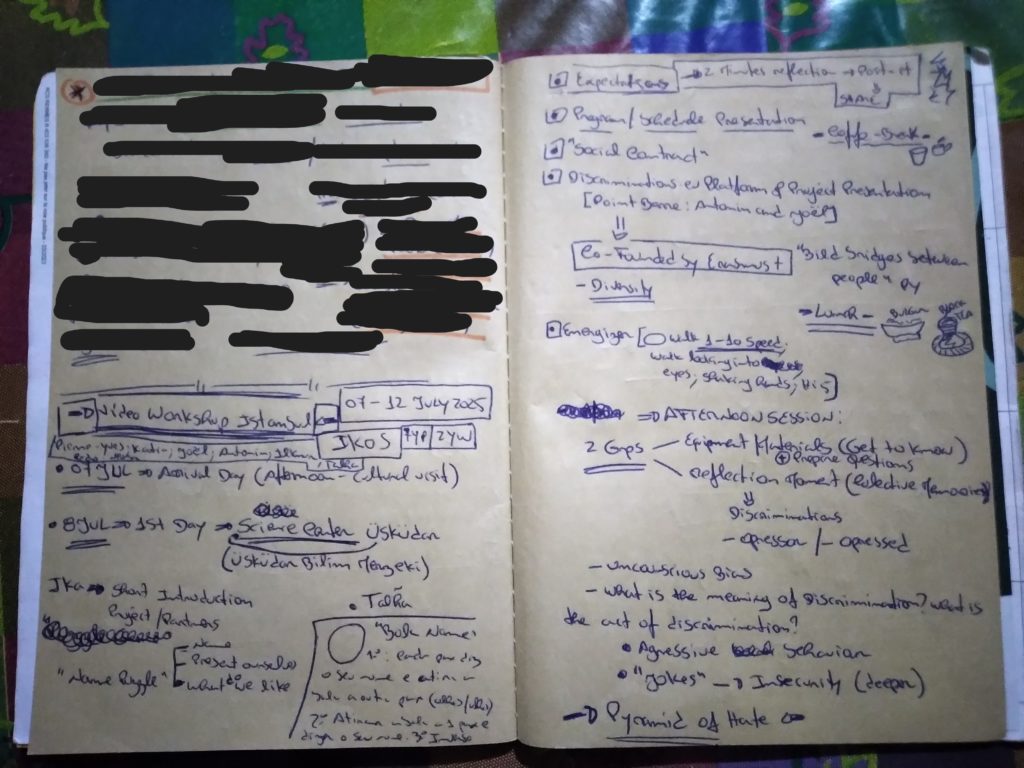 Video Workshop Istambul
07-12 JULY 2025
IKOS
Pierre-Yves, Katrin, Joël, Antonin, Ilkan
07 JUL ⇒ Arrival Day (Afternoon - Cultural visit)
8 JUL ⇒ 1st Day → Science Center Üsküdar
(Üsküdar Bilim Merkezi)
Ika → Short Introduction
Project/Partners
"Name
- Name
- Present ourselves
• what do we like
• Talha
"Bola Name"
1º: cada
o seu nome e atira a
bola a outra (olhos/olhos)
2º Atira a bola
o seu nome. 3º
Expectations → 2 Minutes reflection → Post-it
Program/Schedule Presentation
- Coffe-Break -
"Social Contract"
Discriminations Platform & Project Presentation
[Point Barre: Antonin and Joël]
Co-Founded by Erasmus+
"Build bridges between
people"
- Diversity
- Lunch -
BULGUR
BLACK TEA
Energizer [ walk 1-10 Speed.
walk looking into
eyes; shaking hands; Hi;]
⇒ AFTERNOON SESSION:
2 Grps
Epipment/Materials (Get to know)
+ Prepare Questions
Reflection Moment (Collective Memories)
Discriminations
- opressor / - opressed
- unconscious Bias
- what is the meaning of Discrimination? what is
the act of discrimination?
• Agressive behavior
• "Jokes" → Insecurity (deeper)
→ Pyramid of Hate